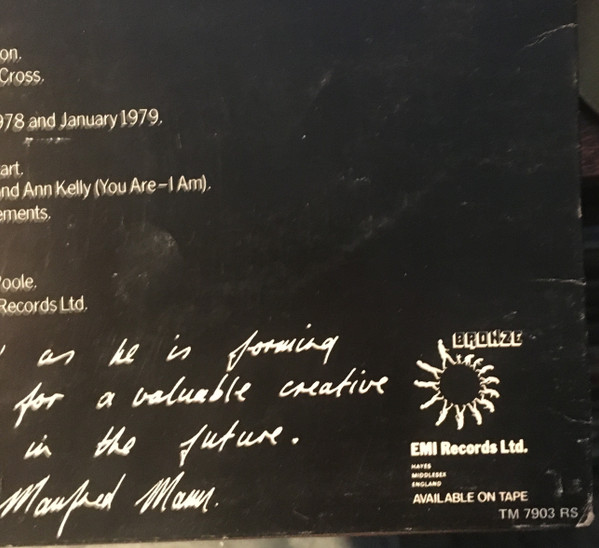 on.
Cross.
978 and January 1979.
art.
nd Ann Kelly (You Are-I Am).
ements.
oole.
Records Ltd.
as he is forming
for a valuable creative
in the future.
Manfred Mann.
BRONZE
EMI Records Ltd.
HAYES
MIDDLESEX
ENGLAND
AVAILABLE ON TAPE
TM 7903 RS